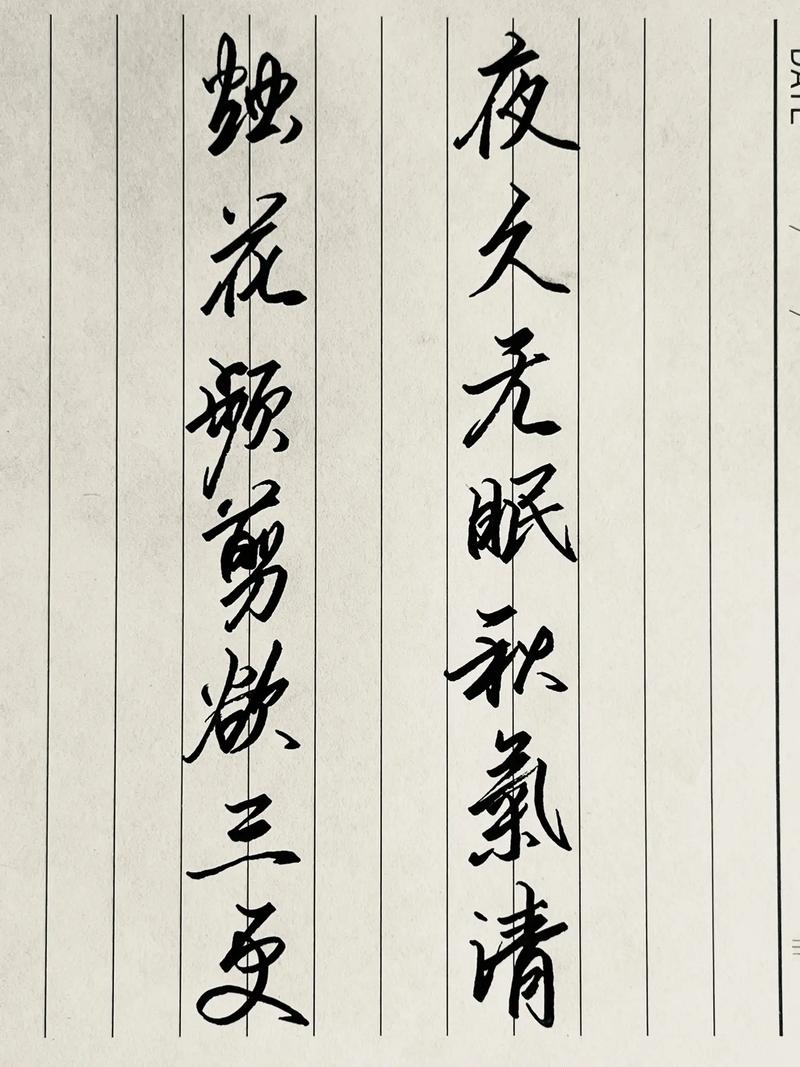 夜久无眠秋氣清
烛花频剪欲三更
DATE